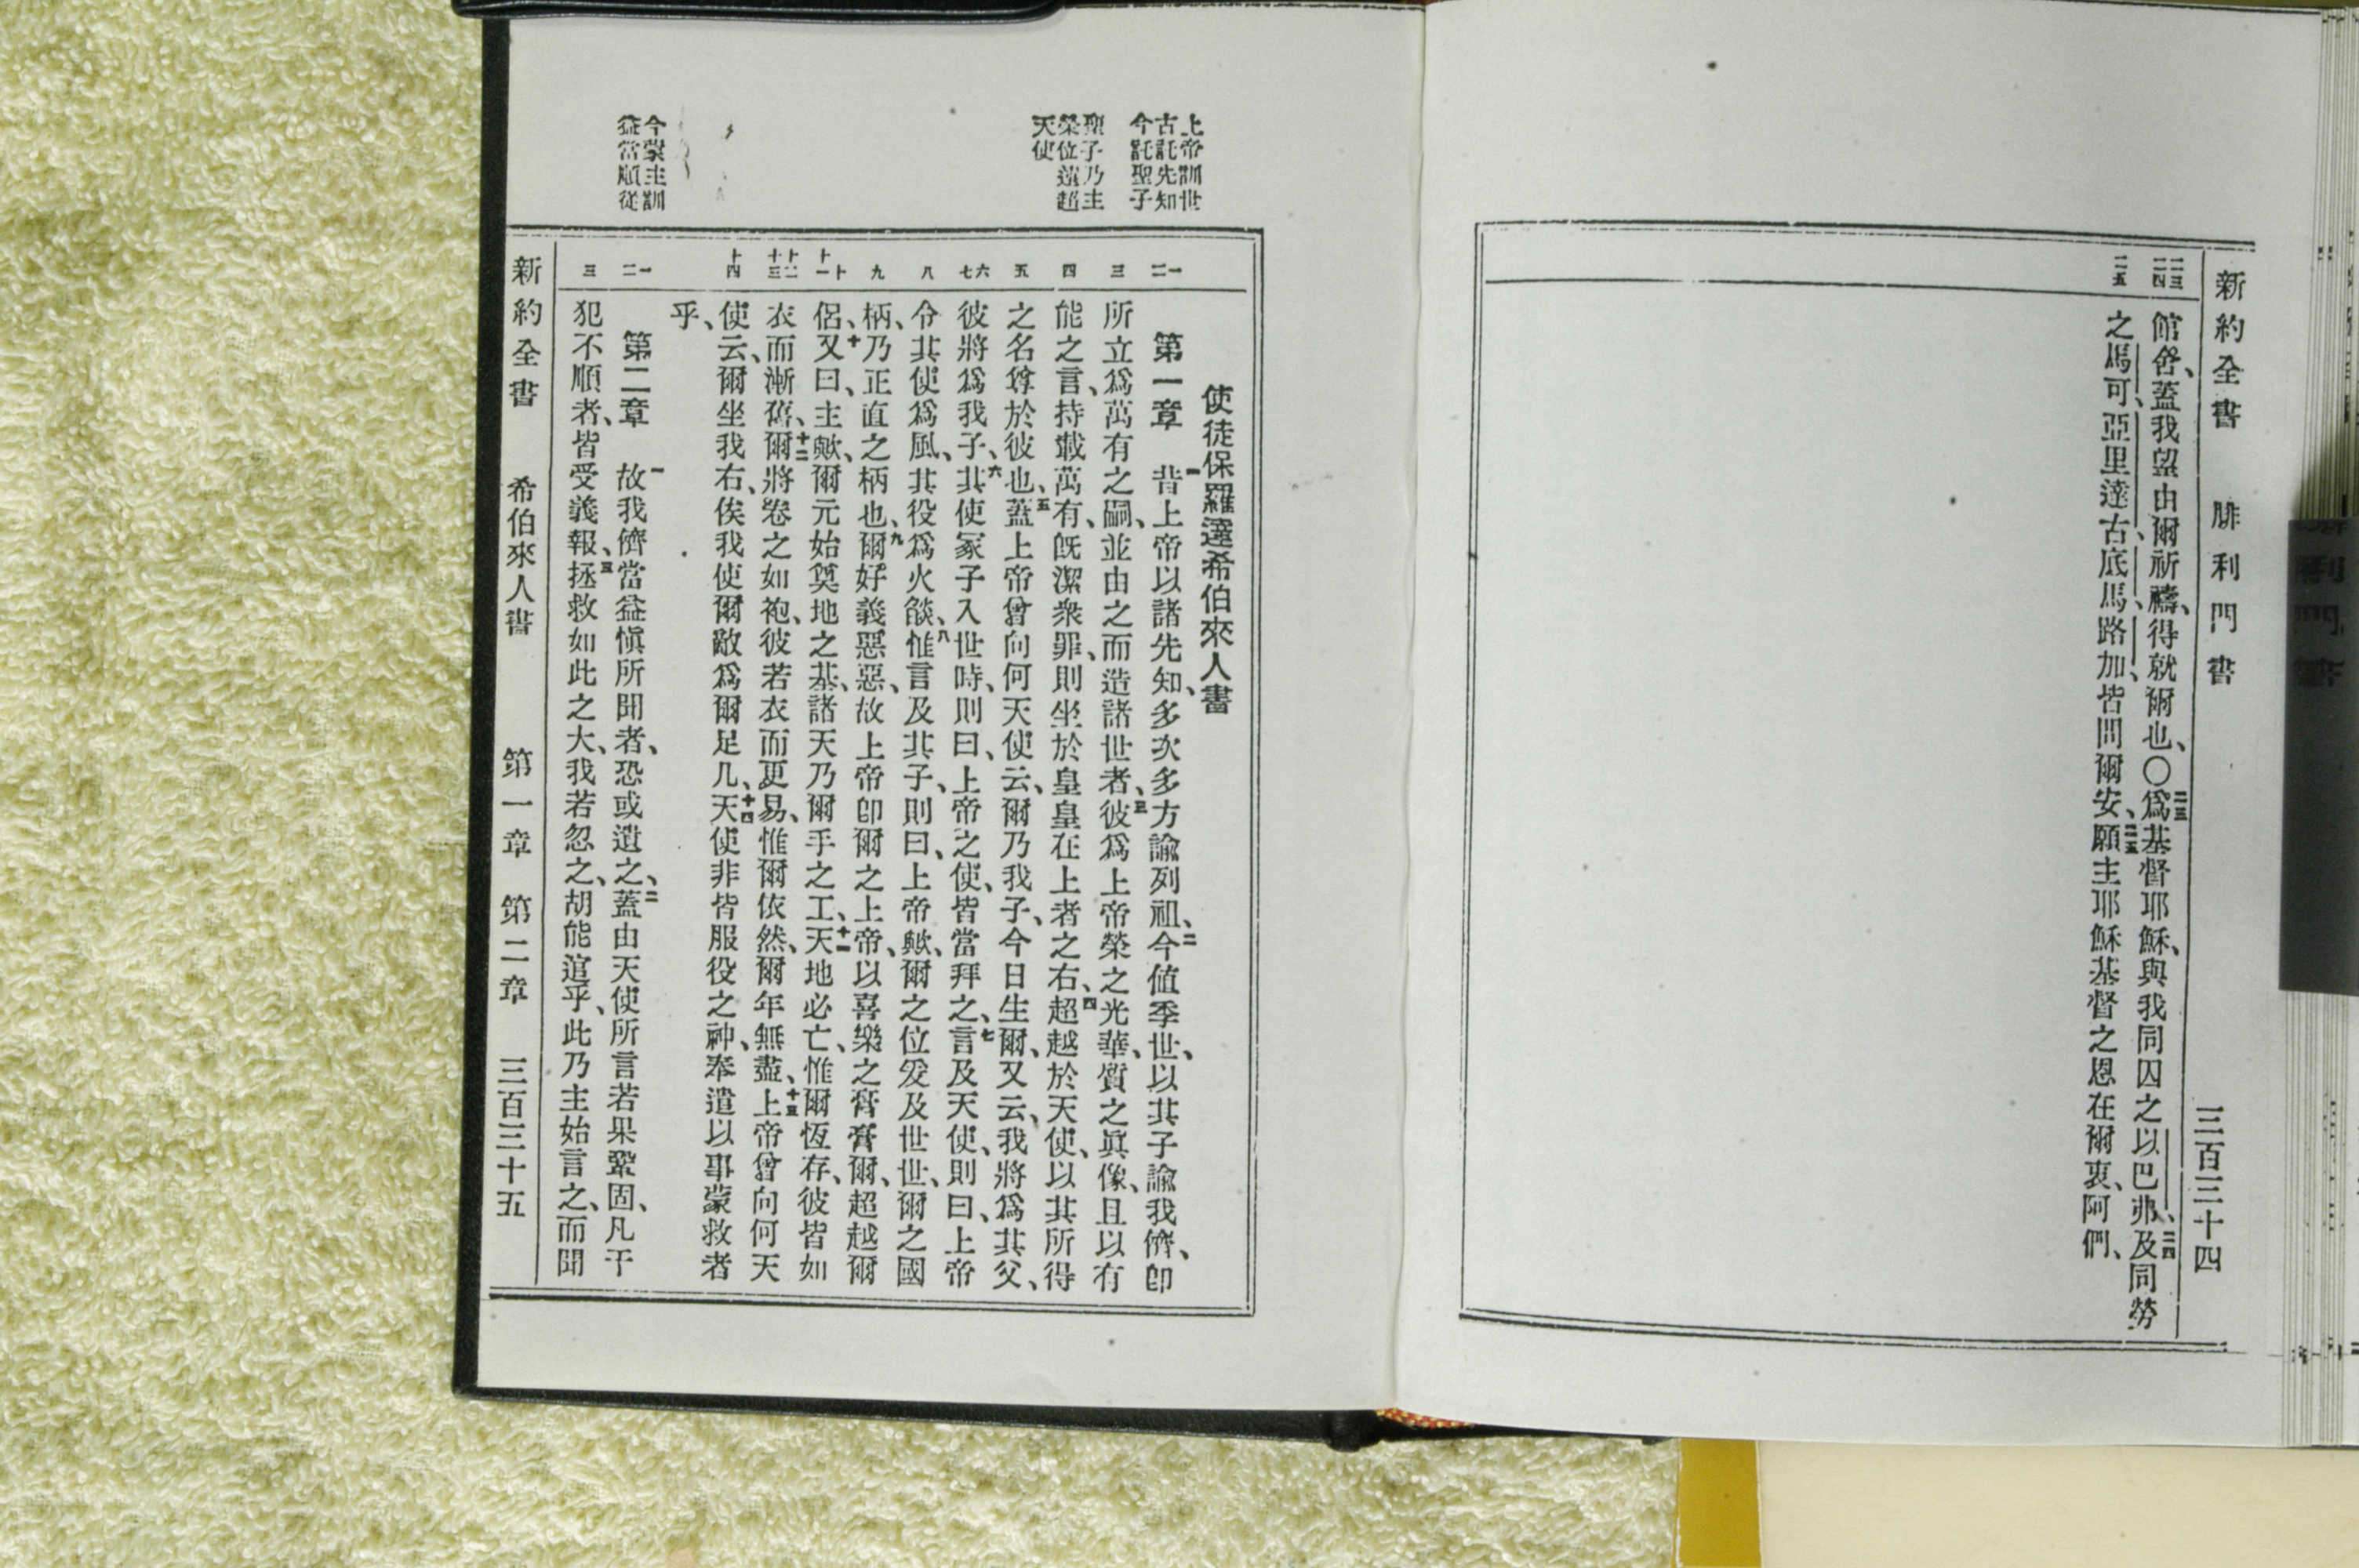 新約全書 腓利門書 三百三十四
二三 二四
二五
館舍、蓋我望由爾祈禱、得就爾也、〇二三爲基督耶穌、與我同囚之以巴弗、二四及同勞
之馬可、亞里達古、底馬、路加、皆問爾安、二五願主耶穌基督之恩在爾衷、阿們、
上帝訓世
古託先知
今託聖子
聖子乃主
榮位遠超
天使
今蒙主訓
益當順從
一 二
三
四
五
六 七
八
九
十 十一
十二 十三
十四
一 二
三
使徒保羅達希伯來人書
第一章 一昔上帝以諸先知、多次多方諭列祖、二今値季世、以其子諭我儕、卽
所立爲萬有之嗣、並由之而造諸世者、三彼爲上帝榮之光華、質之眞像、且以有
能之言、持載萬有、旣潔衆罪、則坐於皇皇在上者之右、四超越於天使、以其所得
之名尊於彼也、五蓋上帝曾向何天使云、爾乃我子、今日生爾、又云、我將爲其父、
彼將爲我子、六其使冢子入世時、則曰、上帝之使、皆當拜之、七言及天使、則曰、上帝
令其使爲風、其役爲火燄、八惟言及其子、則曰、上帝歟、爾之位爰及世世、爾之國
柄、乃正直之柄也、九爾好義惡惡、故上帝卽爾之上帝、以喜樂之膏膏爾、超越爾
侶、十又曰、主歟、爾元始奠地之基、諸天乃爾手之工、十一天地必亡、惟爾恆存、彼皆如
衣而漸舊、十二爾將卷之如袍、彼若衣而更易、惟爾依然、爾年無盡、十三上帝曾向何天
使云、爾坐我右、俟我使爾敵爲爾足几、十四天使非皆服役之神、奉遣以事蒙救者
乎、
第二章 一故我儕當益愼所聞者、恐或遺之、二蓋由天使所言若果鞏固、凡干
犯不順者、皆受義報、三拯救如此之大、我若忽之、胡能逭乎、此乃主始言之、而聞
新約全書 希伯來人書 第一章 第二章 三百三十五